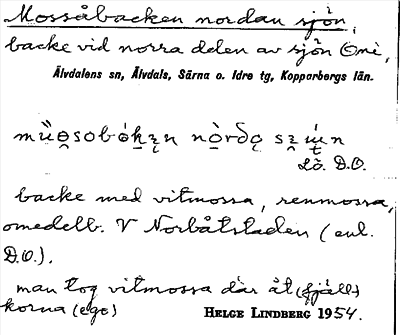 Mossåbacken nordan sjön,
backe vid norra delen av sjön Omi,
Älvdalens sn, Älvdals, Särna o. Idre tg, Kopparbergs län.
Lö. D.O.
backe med vitmossa, renmossa,
omedelb. V Norbåtstaden (enl.
D.O.).
man tog vitmossa där åt (fjäll-)
korna (ego)
HELGE LINDBERG 1954.